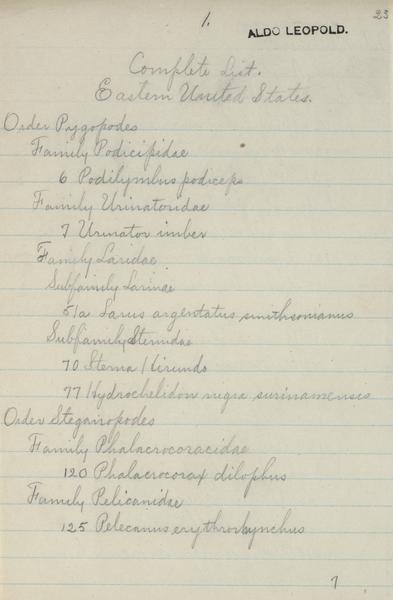 1.
23
ALDO LEOPOLD.
Complete List.
Eastern United States.
Order Pygopodes
Family Podicipidae
6 Podilymbus podiceps
Family Urinatoridae
7 Urinator imber
Family Laridae
Subfamily Larinae
51a Larus argentatus smithsonianus
Subfamily Sternidae
70 Sterna Hirundo
77 Hydrochelidon nigra surinamensis
Order Steganopodes
Family Phalacrocoracidae
120 Phalacrocorax dilophus
Family Pelicanidae
125 Pelecanus erythrorhynchus
7